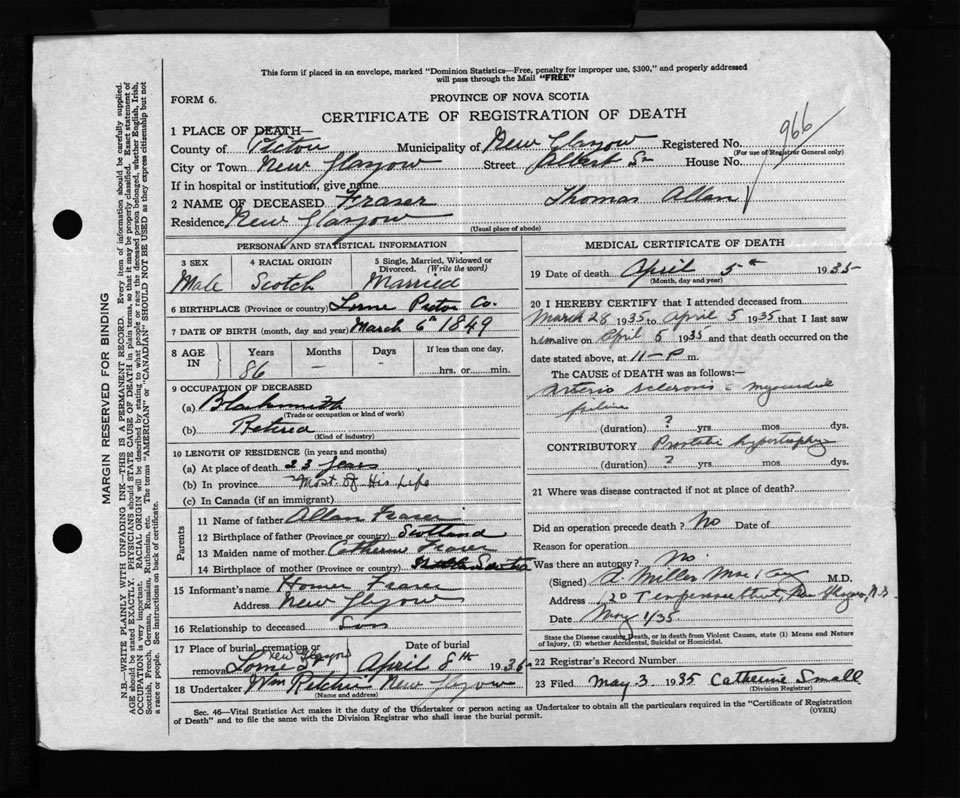 This form if placed in an envelope, marked "Dominion Statistics—Free, penalty for improper use, $300," and properly addressed
will pass through the Mail "FREE"
FORM 6.
PROVINCE OF NOVA SCOTIA
CERTIFICATE OF REGISTRATION OF DEATH
966
1 PLACE OF DEATH—
County of Pictou Municipality of New Glasgow Registered No.
(For use of Registrar General only)
City or Town New Glasgow Street Albert St House No.
If in hospital or institution, give name
2 NAME OF DECEASED Fraser Thomas Allan
Residence New Glasgow
(Usual place of abode)
PERSONAL AND STATISTICAL INFORMATION
3 SEX 4 RACIAL ORIGIN 5 Single, Married, Widowed or
Divorced. (Write the word)
Male Scotch Married
6 BIRTHPLACE (Province or country) Lorne Pictou Co.
7 DATE OF BIRTH (month, day and year) March 6th 1849
8 AGE IN Years Months Days If less than one day,
86 – – hrs. or min.
9 OCCUPATION OF DECEASED
(a) Blacksmith
(Trade or occupation or kind of work)
(b) Retired
(Kind of industry)
10 LENGTH OF RESIDENCE (in years and months)
(a) At place of death 23 years
(b) In province Most of His Life
(c) In Canada (if an immigrant)
Parents
11 Name of father Allan Fraser
12 Birthplace of father (Province or country) Scotland
13 Maiden name of mother Catherine Fraser
14 Birthplace of mother (Province or country)
15 Informant's name Homer Fraser
Address New Glasgow
16 Relationship to deceased Son
17 Place of burial, cremation or Date of burial
New Glasgow
removal Lorne St April 8th 1935
18 Undertaker Wm Ritchie New Glasgow
(Name and address)
MEDICAL CERTIFICATE OF DEATH
19 Date of death April 5th 1935
(Month, day and year)
20 I HEREBY CERTIFY that I attended deceased from
March 28 1935 to April 5 1935 that I last saw
him alive on April 5 1935 and that death occurred on
date stated above, at 11–P m.
The CAUSE of DEATH was as follows:—
Arterio sclerosis c myocardial
failure
(duration) ? yrs. mos. dys.
CONTRIBUTORY Prostatic hypertrophy
(duration) ? yrs. mos. dys.
21 Where was disease contracted if not at place of death?
Did an operation precede death? No Date of
Reason for operation
Was there an autopsy? No.
(Signed) A. Miller MacKay M.D.
Address 120 Temperance Street, New Glasgow, N.S.
Date May 1/35
State the Disease causing Death, or in death from Violent Causes, state (1) Means and Nature
of Injury, (2) whether Accidental, Suicidal or Homicidal.
22 Registrar's Record Number
23 Filed May 3 1935 Catherine Small
(Division Registrar)
Sec. 46—Vital Statistics Act makes it the duty of the Undertaker or person acting as Undertaker to obtain all the particulars required in the "Certificate of Registration
of Death" and to file the same with the Division Registrar who shall issue the burial permit. (OVER)
MARGIN RESERVED FOR BINDING
N.B.—WRITE PLAINLY WITH UNFADING INK—THIS IS A PERMANENT RECORD. Every item of information should be carefully supplied.
AGE should be stated EXACTLY. PHYSICIANS should STATE CAUSE OF DEATH in plain terms, so that it may be properly classified. Exact statement of
OCCUPATION is very important. RACIAL ORIGIN will be described by stating to what people or race the deceased person belonged, whether English, Irish,
Scottish, French, German, Russian, Ruthenian, etc. The terms "AMERICAN" or "CANADIAN" SHOULD NOT BE USED as they express citizenship but not
a race or people. See instructions on back of certificate.